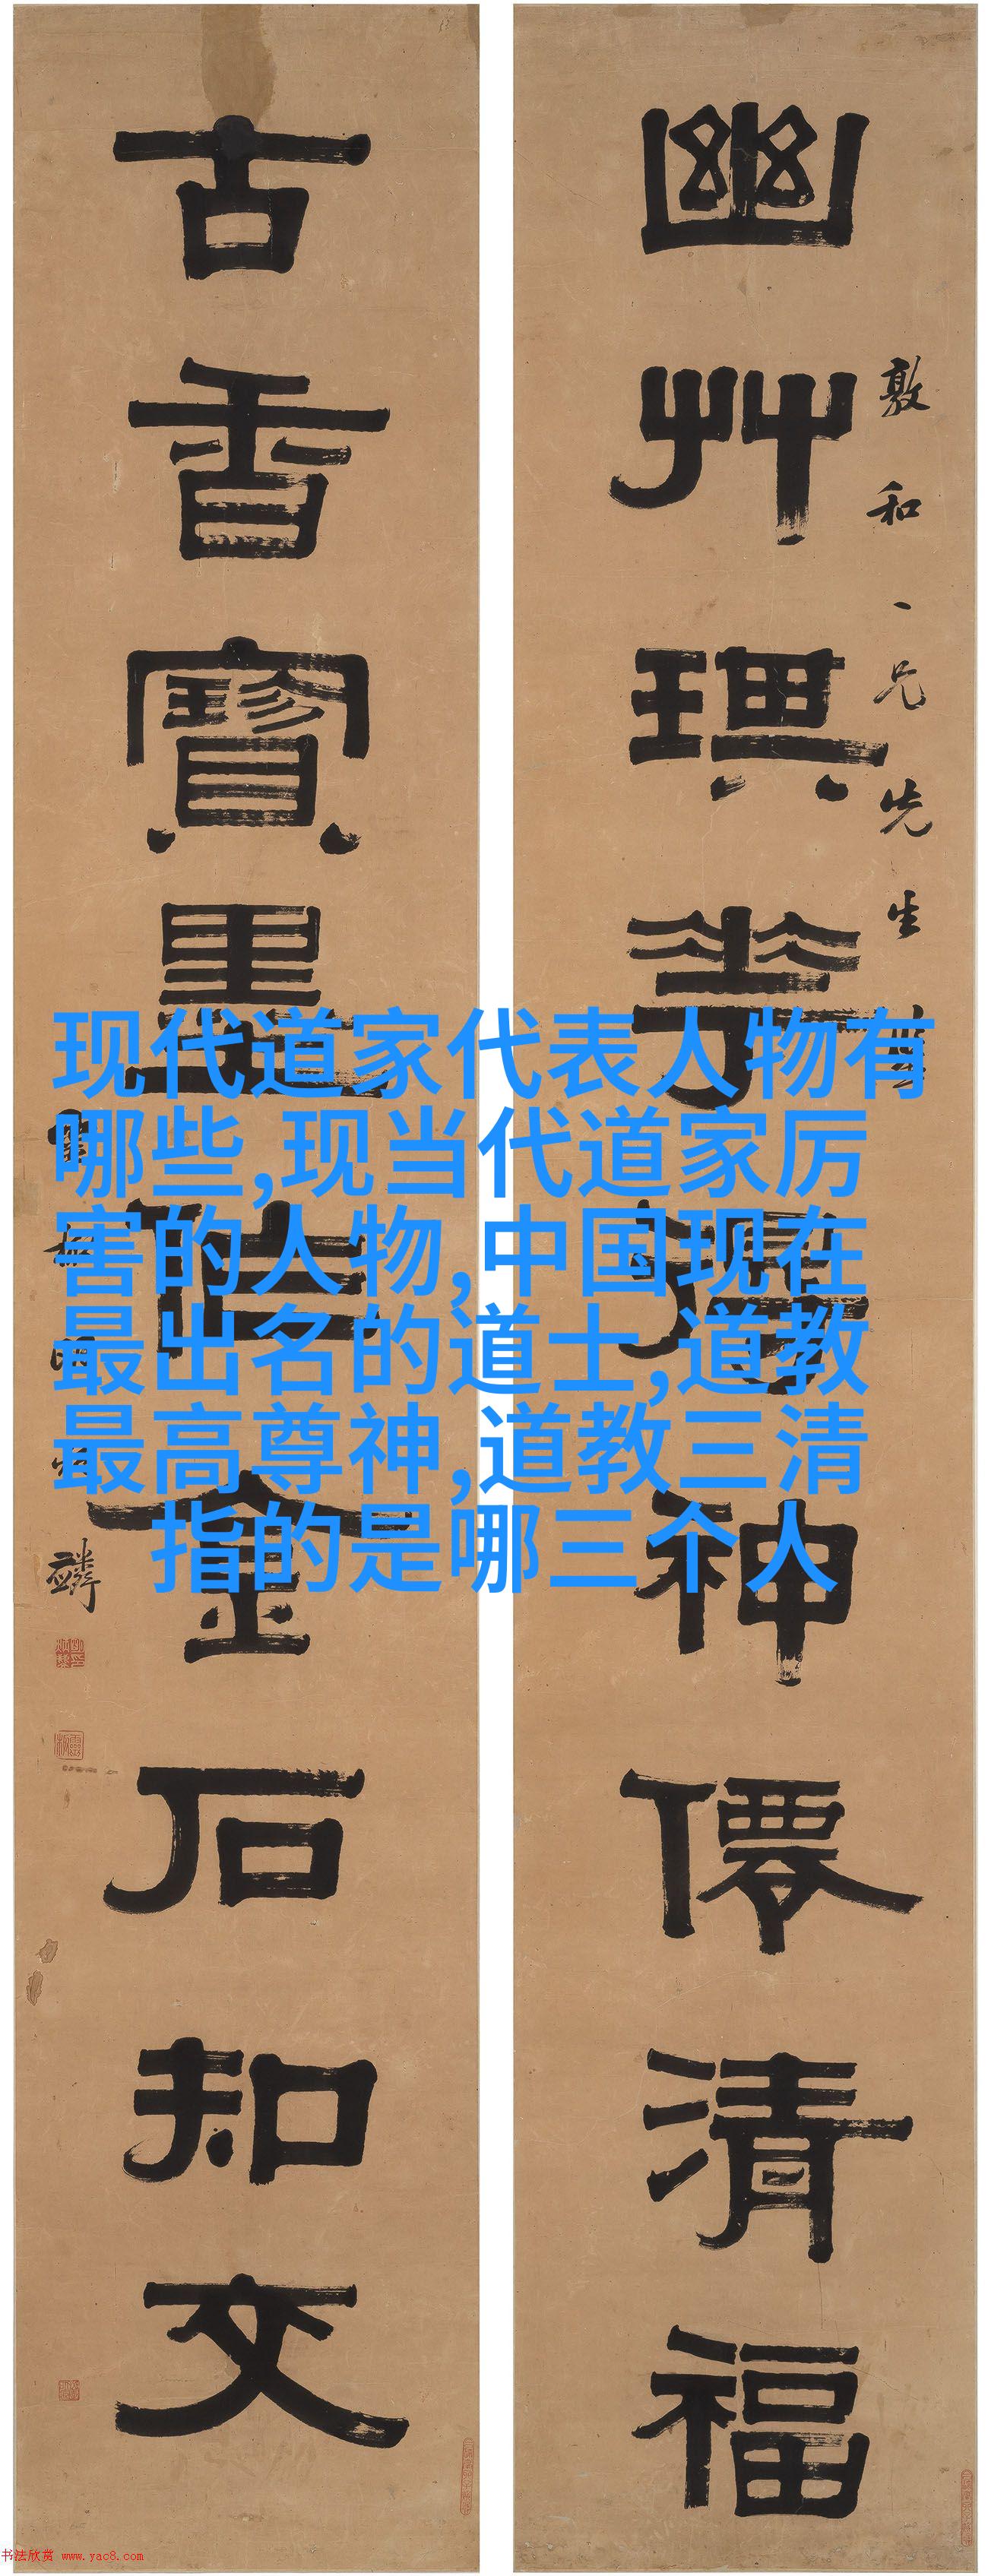 幽艸琪神僊清福
敦和一兄先生
古香寶墨金石知文
现代道家代表人物有
哪些,现当代道家厉
害的人物,中国现在
最出名的道士,道教
最高尊神,道教三清
指的是哪三个人
书法欣赏 www.yac8.com